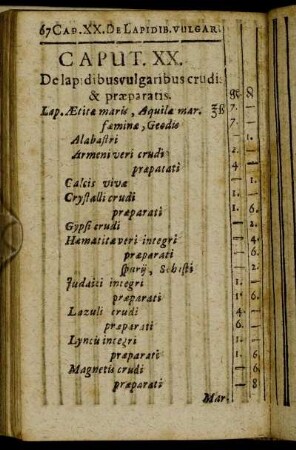 67 CAP. XX. DE LAPIDIB. VULGAR.
CAPUT. XX.
De lapidibus vulgaribus crudis
& præparatis.
Lap. Ætitæ maris, Aquilæ mar. ʒß 7.
fæminæ, Geodis 7.
Alabastri
Armeni veri crudi 1.
præpatati 4
Calcis vivæ
Crystalli crudi 1.
præparati 1. 6.
Gypsi crudi 2
Hæmatitæ veri integri 4
præparati 1. 6
spurij, Schisti 2
Judaici integri 1.
præparati 1. 4
Lazuli crudi 2.
præparati 6.
Lyncii integri 1.
præparati 1. 6
Magnetis crudi 6
præparati 8
Mar.